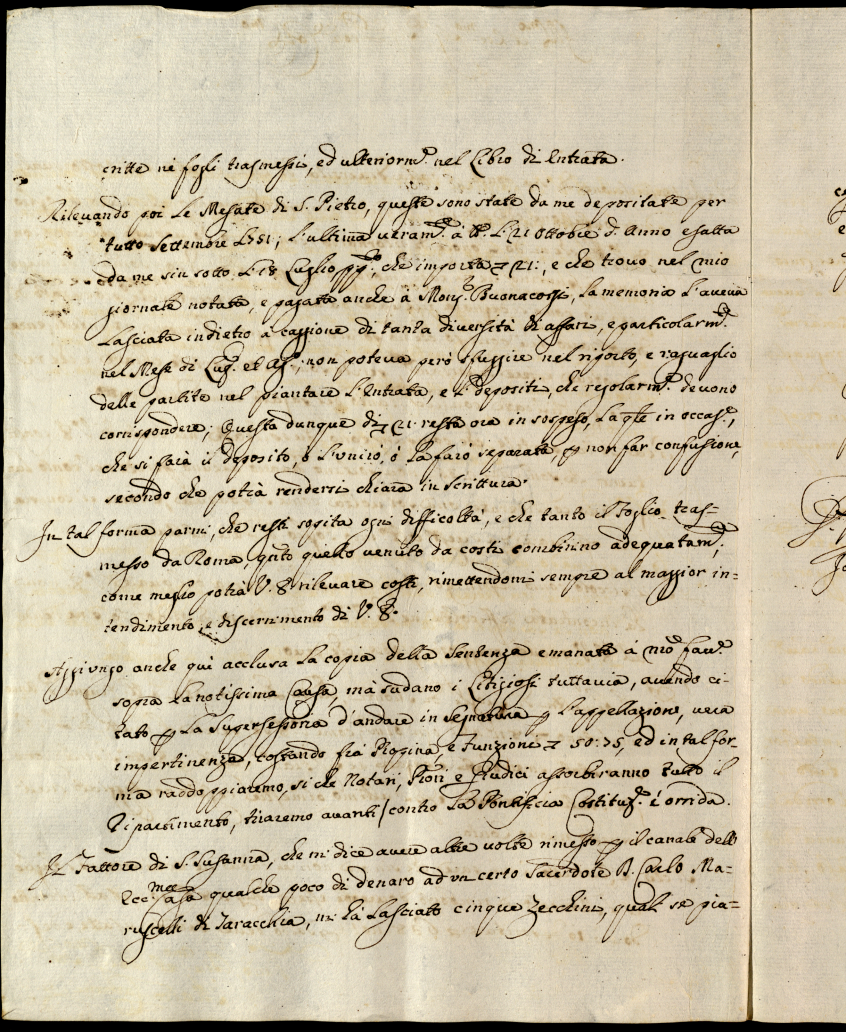 critte ne fogli trasmessi, ed ulteriorm.e nel Libro di Entrata.
Rilevando poi Le Mesate di S. Pietro, queste sono state da me depositate per
tutto Settembre 1751; L'ultima veram.e à di 21 Ottobre d. Anno esatta
da me sin sotto Li 18 Luglio pp.o, che importa 21:, e che trovo nel mio
giornale notata, e pagata anche à Mons.r Buonacorsi, La memoria L'aveva
Lasciata indietro à caggione di tanta diversità di affari, e particolarm.e
nel Mese di Lug. et Ag.; non poteva però sfuggire nel riporto, e raguaglio
delle partite nel piantare L'Entrata, e L. depositi, che regolarm.e devono
corrispondere; Questa dunque di 21 resta ora in sospeso, La qle in occas.e,
che si farà il deposito, ò L'unirò, ò La farò separata, p non far confusione,
secondo che potrà rendersi chiara in Scrittura.
In tal forma parmi, che resti sopita ogni difficoltà, e che tanto il Foglio tras=
messo da Roma, qnto quello venuto da costì combinino adequatam.e;
come meglio potrà V. S. rilevare costì, rimettendomi sempre al maggior in=
tendimento, e discernimento di V. S.
Aggiungo anche quì acclusa La copia della Sentenza emanata à mio fav.e
sopra La notissima Causa, mà sudano i Litigiosi tuttavia, avendo ci=
tato p La Supersessoria d'andare in Segnatura p L'appellazione, vera
impertinenza, costando frà Propina, e Funzione 50:75, ed in tal for=
ma raddoppiaremo, si che Notari, e Giudici assorbiranno tutto il
Ripartimento, tiraremo avanti / contro La Pontificia Costituz.e è orrida.
Il Fattore di S. Susanna, che mi dice avere altre volte rimesso p il canale dell
Ecc.ma Casa qualche poco di denaro ad un certo Sacerdote D. Carlo Ma=
ruscelli di Taracchia, mi hà Lasciato cinque Zecchini, quali se pia=